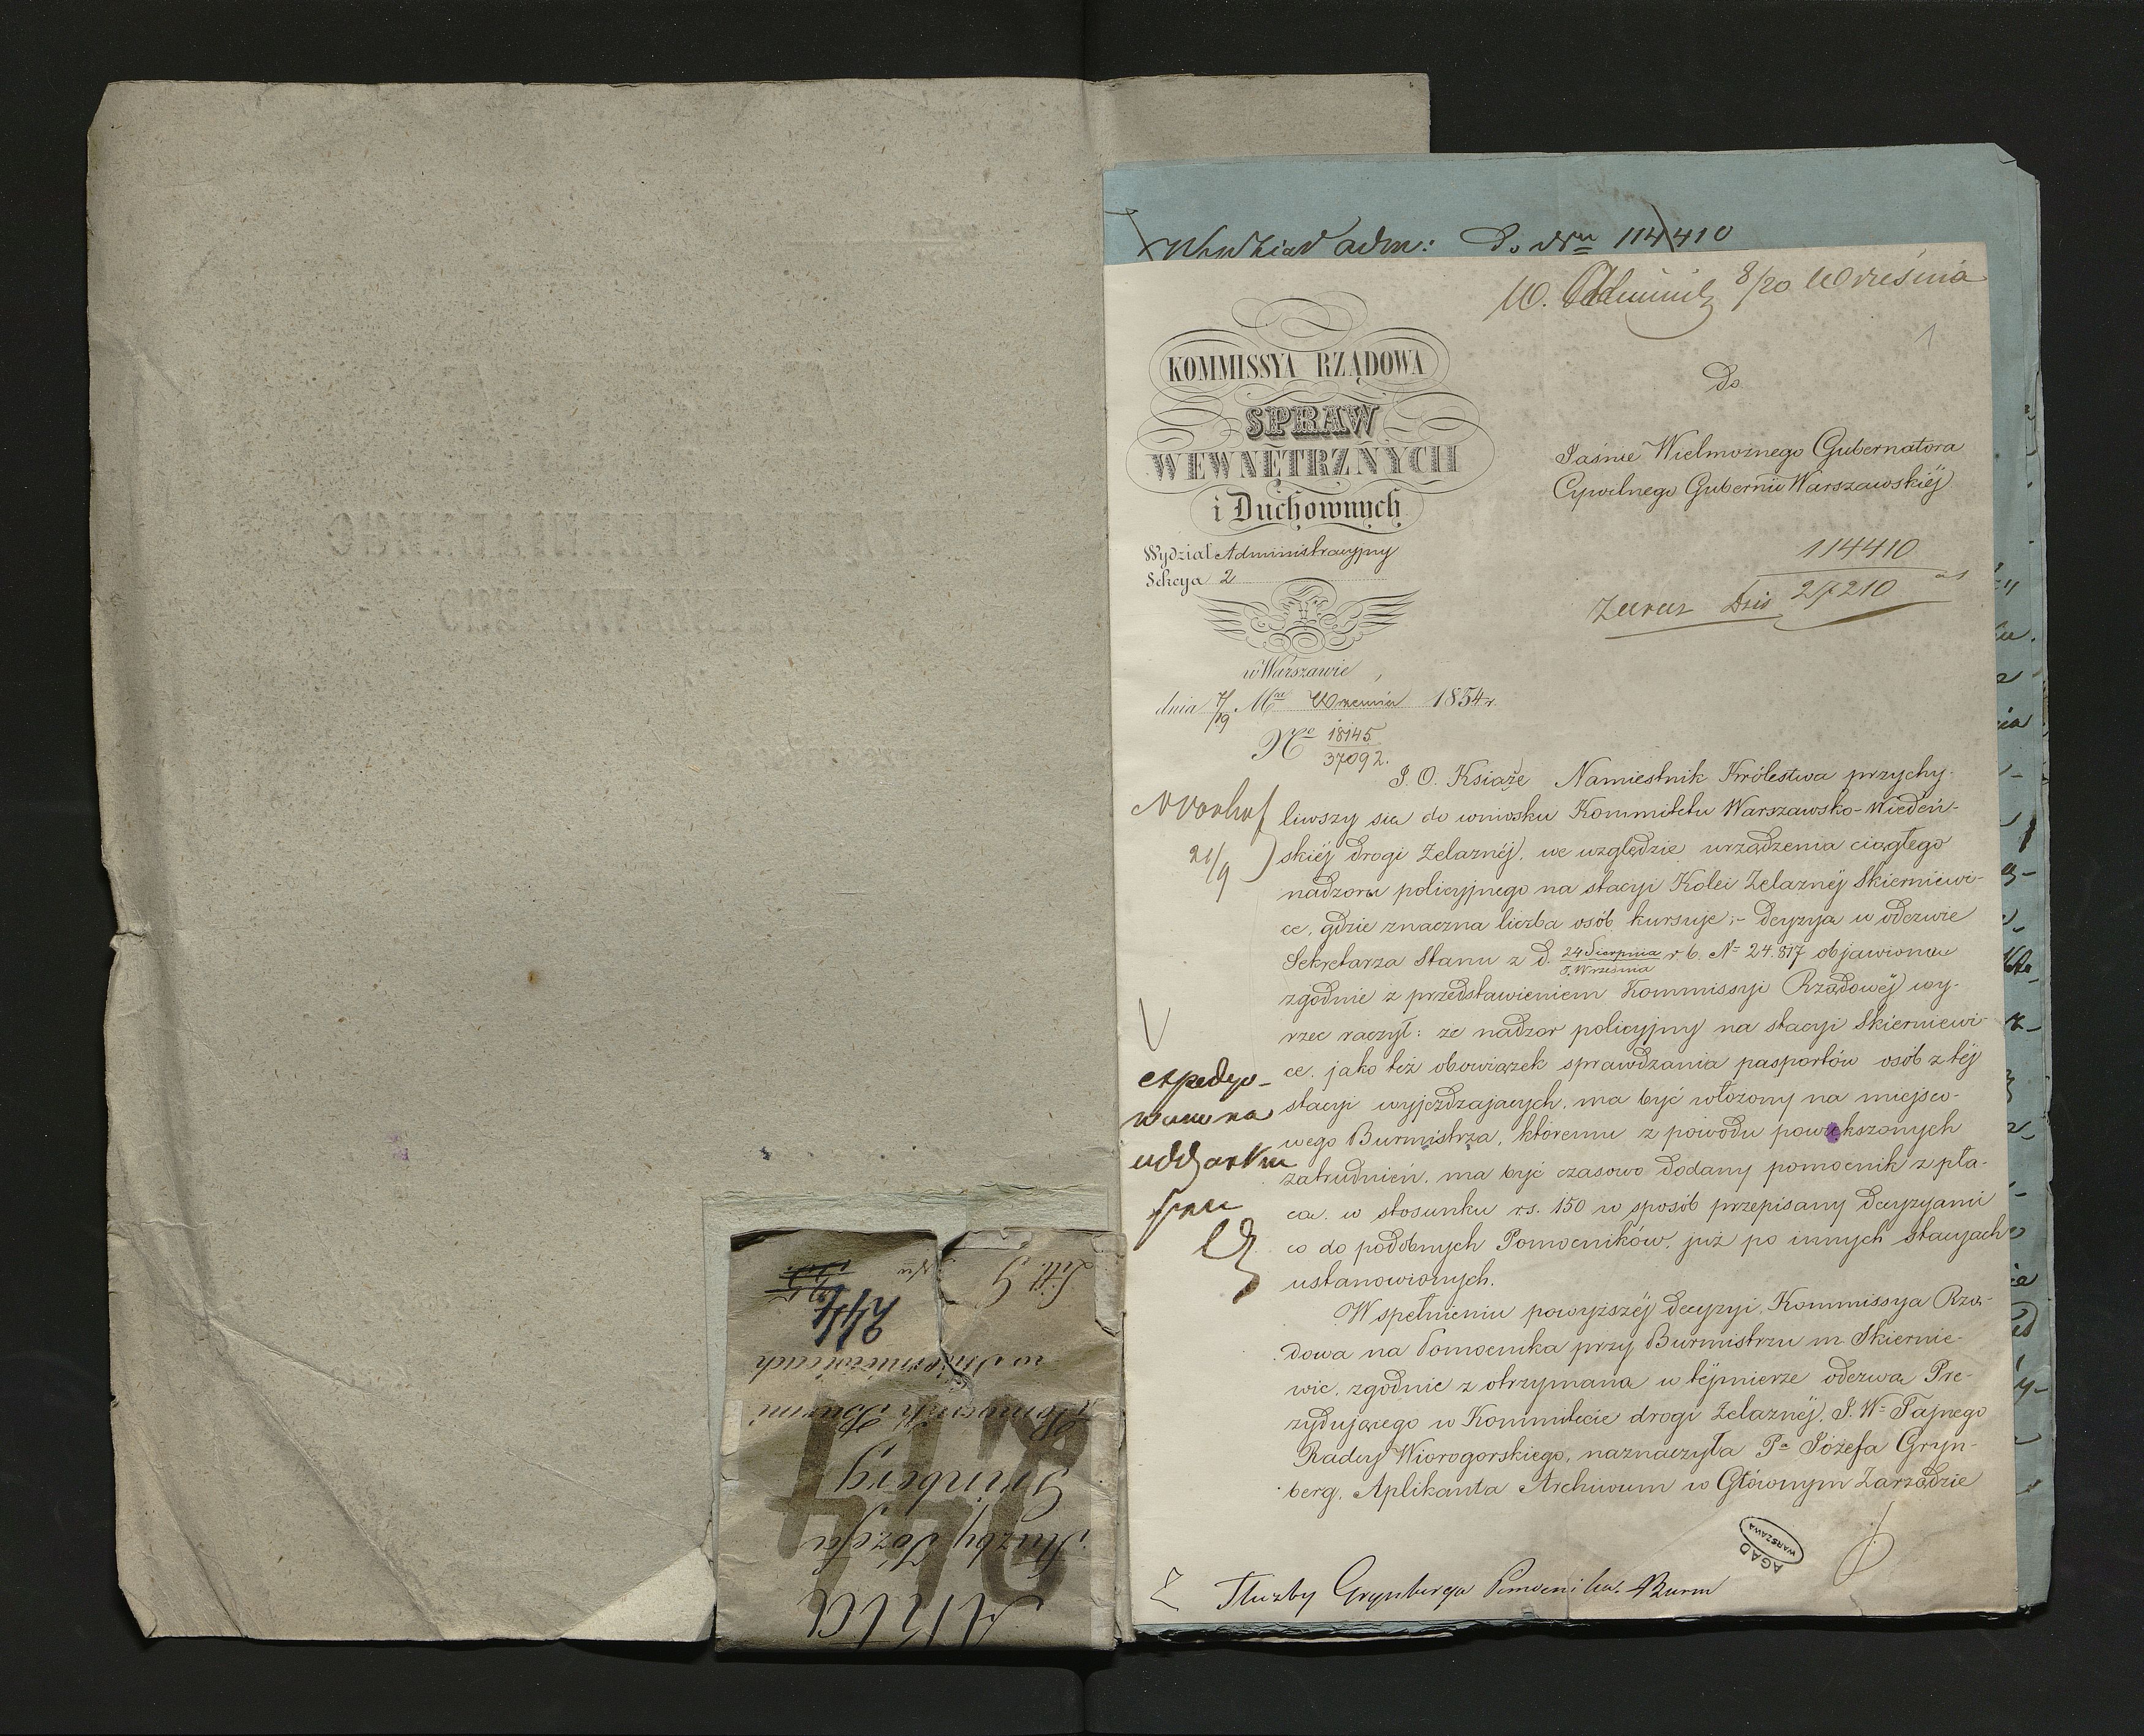 Wydział adm: Do Nru 114410
W. Administ 8/20 Września
1
KOMMISSYA RZĄDOWA
SPRAW
WEWNĘTRZNYCH
i Duchownych
Wydział Administracyjny
Sekcya 2
w Warszawie
dnia 7/19 Mca Września 1854 r.
No 18145
37092.
Do
Jaśnie Wielmożnego Gubernatora
Cywilnego Gubernii Warszawskiéj
114410
27210
Zaraz Dziś
J. O. Xiąże Namiestnik Królestwa przychy-
liwszy się do wniosku Kommitetu Warszawsko-Wiedeń-
skiéj drogi Żelaznéj, we względzie urządzenia ciągłego
nadzoru policyjnego na stacyi Kolei Żelaznéj Skierniewi-
ce, gdzie znaczna liczba osób kursuje;- decyzya w odezwie
Sekretarza Stanu z d. 24 Sierpnia/5 Września r b. No 24.817 objawiona
zgodnie z przedstawieniem Kommissyi Rządowéj wy-
rzec raczył: że nadzor policyjny na stacyi Skierniewi-
ce, jako też obowiązek sprawdzania pasportów osób z téj
stacyi wyjeżdzających, ma być włożony na miejsco-
wego Burmistrza, któremu z powodu powiększonych
zatrudnień, ma być czasowo dodany pomocnik z pła-
cą w stosunku rs. 150 w sposób przepisany decyzyami
co do podobnych Pomocników, już po innych stacyach
ustanowionych.
W spełnieniu powyższéj decyzyi, Kommissya Rzą-
dowa na Pomocnika przy Burmistrzu m. Skiernie-
wic, zgodnie z otrzymaną w téjmierze odezwą Pre-
zydującego w Kommitecie drogi Żelaznéj, J. W= Tajnego
Radcy Wiorogorskiego, naznaczyła Pa Józefa Gryn-
berg, Aplikanta Archiwum w Głównym Zarządzie
21/9
AGAD
WARSZAWA
Służby Grynberga Pomocnika Burm
Akta
Służby Józefa
Grinberg
Pomocnik Burmi
w Skierniewicach
Litt. G Nro
244